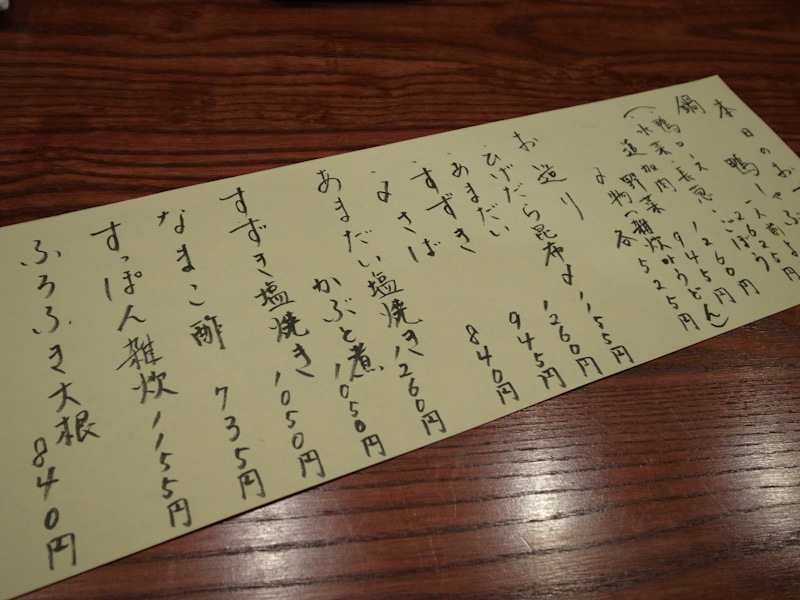 本日のおすすめ
鴨しゃぶ
一人前 2625円
鍋
鴨ロース
1260円
945円
追加
野菜
各525円
お造り
ひげだら昆布〆 1155円
あまだい 1260円
すずき 945円
〆さば 840円
あまだい塩焼き 1260円
かぶと煮 1050円
すずき塩焼き 1050円
なまこ酢 735円
すっぽん雑炊 1155円
ふろふき大根 840円